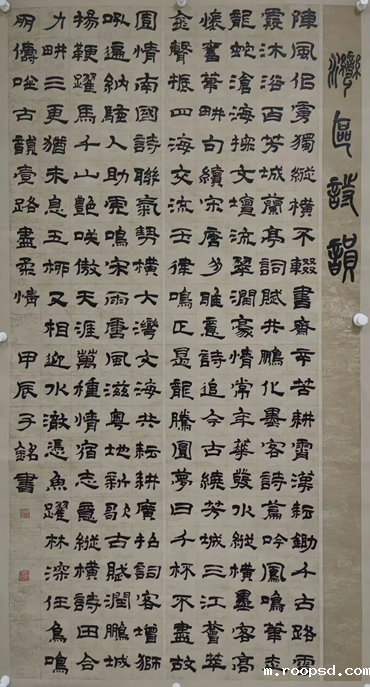 灣區詩韻
陣風佀虜獨縱橫不輟書齋辛苦耕霄漢耘鋤千古路雷
霖沐浴百芳城蘭亭詞賦共鵬化墨客詩篇吟鳳鳴筆走
龍蛇滄海探文壇流翠潤豪情常年華發水縱橫墨客高
懷奮筆畊句續宋唐多雅意詩追今古繞芳城三江薈萃
金聲振四海交流玉律鳴正是龍騰圓夢日千杯不盡故
園情南國詩聯氣勢橫大灣文海共耘耕廣招詞客增獅
吼遍納騷人助虎鳴宋雨唐風滋粵地新歌古賦潤鵬城
揚鞭躍馬千山艷咲傲天涯萬種情宿志意縱橫詩田合
力畊三更猶未息五柳又相迎水澈憑魚躍林深任鳥鳴
朋儔古韻壹路盡柔情 甲辰子銘書
m.roopsd.com